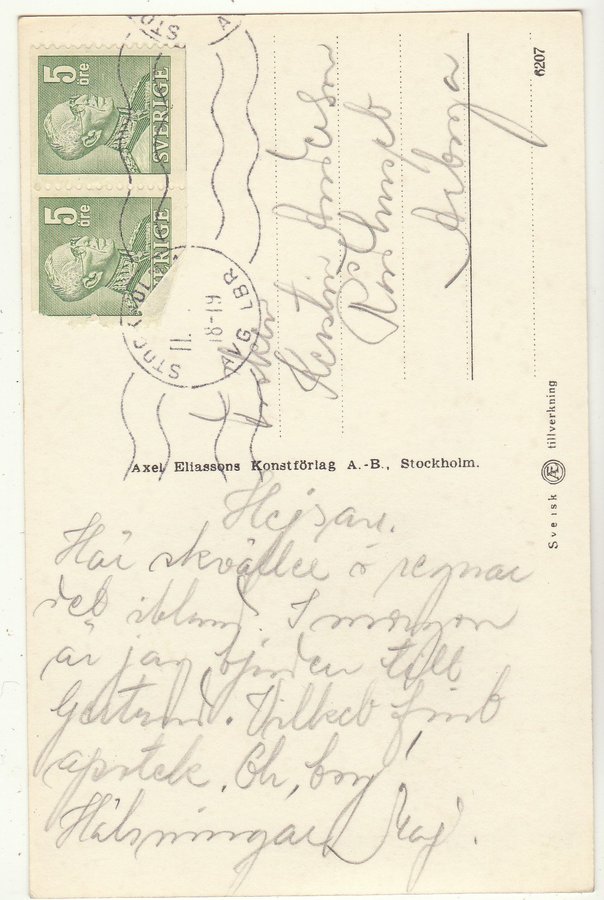 Hejsan.
Här skvaller o regnar
det ibland. I morgon
är jag bjuden till
Gertrud. Vilket fint
apotek. Oh, boy!
Hälsningar Maj.
Axel Eliassons Konstförlag A.-B., Stockholm.
Fröken
Kerstin Andersson
Arboga
6207
Svensk Æ tillverkning
5 öre
SVERIGE
5 öre
SVERIGE
STOCKHOLM
11.
18-19
AVG LBR